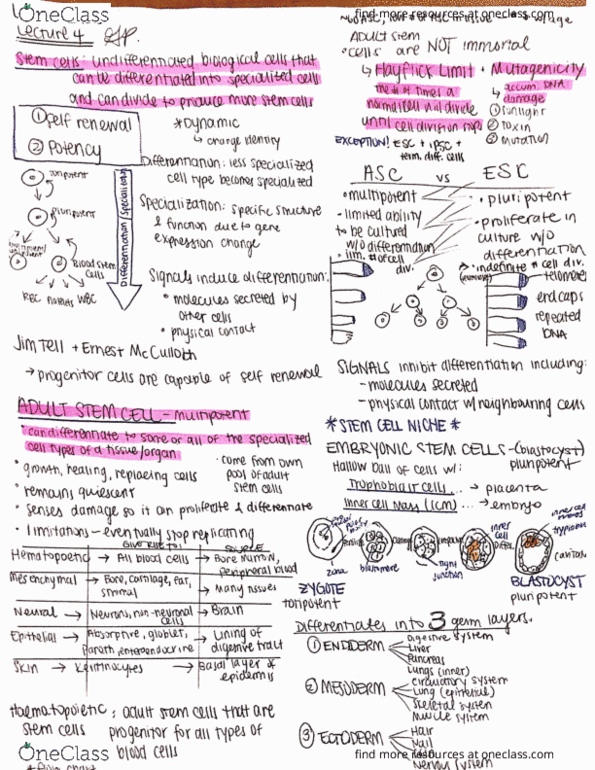 OneClass
Lecture 4
Stem cells: undifferentiated biological cells that
can be differentiated into specialized cells
and can divide to produce more stem cells
① Self renewal
② Potency
*Dynamic
↳ change identity
Differentiation: less specialized
cell type becomes specialized
totipotent
pluripotent
Blood stem
cells
RBC platelets WBC
Differentiation/Specialization
Specialization: specific structure
& function due to gene
expression change
Signals induce differentiation:
• molecules secreted by
other cells
• physical contact
Jim Tell + Ernest McCulloch
→ progenitor cells are capable of self renewal
ADULT STEM CELL - multipotent
• can differentiate to some or all of the specialized
cell types of a tissue/organ
• growth, healing, replacing cells
• remains quiescent
• come from own
pool of adult
stem cells
• senses damage so it can proliferate & differentiate
• limitations - eventually stop replicating
GIVE RISE TO: SOURCE
Hematopoetic → All blood cells → Bone Marrow,
peripheral blood
Mesenchymal → Bone, cartilage, fat,
stromal → Many tissues
Neural → Neurons, non-neuronal
cells → Brain
Epithelial → Absorptive, goblet,
paneth, enteroendocrine → Lining of
digestive tract
Skin → Keritinocytes → Basal layer of
epidermis
Haematopoietic : adult stem cells that are
stem cells progenitor for all types of
blood cells
OneClass
find more resources at oneclass.com
ADULT Stem
• cells are NOT immortal
↳ Hayflick Limit + Mutagenicity
the # of times a
normal cell will divide
until cell division stops
↳ accum. DNA
damage
① sunlight
② toxin
③ mutation
EXCEPTION! ESC + iPSC +
term. diff. cells
ASC vs ESC
• multipotent
• limited ability
to be cultured
w/o differentiation
• lim. # of cell
div.
• pluripotent
• proliferate in
culture w/o
differentiation
• indefinite # cell div.
telomeres
end caps
repeated
DNA
SIGNALS inhibit differentiation including:
- molecules secreted
- physical contact w/ neighbouring cells
* STEM CELL NICHE *
EMBRYONIC STEM CELLS - (blastocyst)
pluripotent
Hallow ball of cells w/:
Trophoblast cells... → placenta
Inner cell Mass (ICM)... → embryo
zona
blastomere
tight
junction
inner
cell
cavity
ZYGOTE
totipotent
BLASTOCYST
pluripotent
Differentiates into 3 germ layers.
① ENDODERM
Digestive system
Liver
Pancreas
Lungs (inner)
② MESODERM
circulatory system
Lung (epithelial)
Skeletal system
Muscle system
③ ECTODERM
Hair
Nail
Nervous system
find more resources at oneclass.com